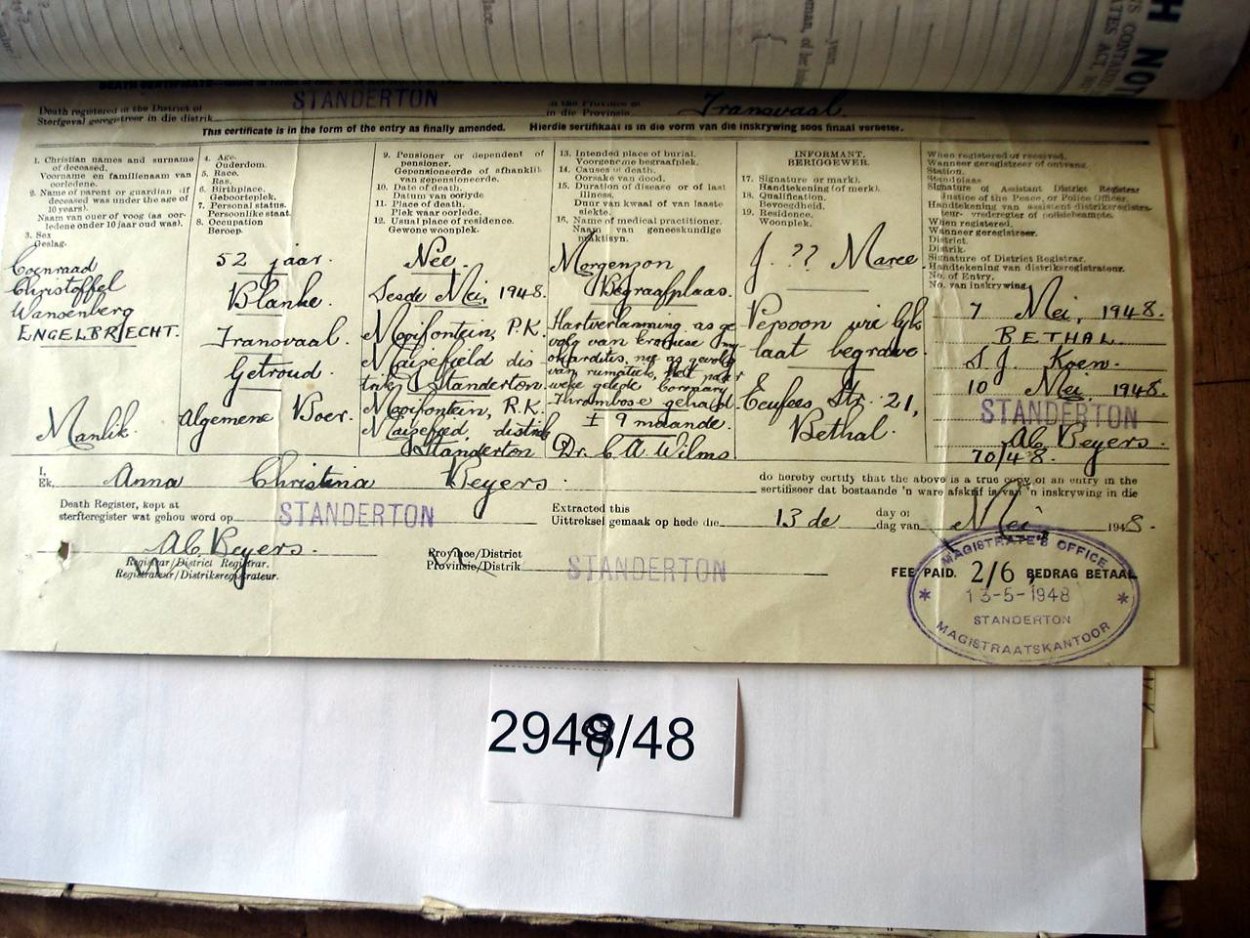 H NOT
Death registered in the District of
Sterfgeval geregistreer in die distrik
STANDERTON
in die Provinsie
Transvaal.
This certificate is in the form of the entry as finally amended. Hierdie sertifikaat is in die vorm van die inskrywing soos finaal verbeter.
1. Christian names and surname
of deceased.
Voornaam en familienaam van
oorledene.
2. Name of parent or guardian (if
deceased was under the age of
10 years).
Naam van ouer of voog (as oor-
ledene onder 10 jaar oud was).
3. Sex
Geslag.
4. Age.
Ouderdom.
5. Race.
Ras.
6. Birthplace.
Geboorteplek.
7. Personal status.
Persoonlike staat.
8. Occupation
Beroep.
9. Pensioner or dependent of
pensioner.
Gepensioeneerde of afhanklik
van gepensioeneerde.
10. Date of death.
Datum van oorlyde
11. Place of death.
Plek waar oorlede.
12. Usual place of residence.
Gewone woonplek.
13. Intended place of burial.
Voorgenome begraafplek.
14. Causes of death.
Oorsake van dood.
15. Duration of disease or of last
illness.
Duur van kwaal of van laaste
siekte.
16. Name of medical practitioner.
Naam van geneeskundige
praktisyn.
INFORMANT.
BERIGGEWER.
17. Signature (or mark).
Handtekening (of merk).
18. Qualification.
Bevoegdheid.
19. Residence.
Woonplek.
When registered or received.
Wanneer geregistreer of ontvang.
Station.
Standplaas.
Signature of Assistant District Registrar
Justice of the Peace, or Police Officer.
Handtekening van assistent distriksregistra-
teur- vrederegter of polisiebeampte.
When registered.
Wanneer geregistreer.
District.
Distrik.
Signature of District Registrar.
Handtekening van distriksregistrateur.
No. of Entry.
No. van inskrywing.
Coenraad
Christoffel
Wansenberg
ENGELBRECHT.
Manlik.
52 jaar.
Blanke.
Transvaal.
Getroud.
Algemene Boer.
Nee.
Sesde Mei, 1948.
Mooifontein, P.K.
Maizefield dis
trik Standerton.
Mooifontein, P.K.
distrik
Standerton
Morgenson
Begraafplaas.
Hartverlamming as ge
volg van kroniese my
okarditis,
van rumatiek, Het paar
weke gelede Coronary
Thrombose gehad.
± 9 maande.
Dr. C. A. Wilms
J. ?? Maree
Persoon wie lyk
laat begrawe.
Eeufees Str. 21,
Bethal.
7 Mei, 1948.
BETHAL
S. J. Koen.
10 Mei, 1948.
STANDERTON
AC Beyers.
70/48.
I,
Ek, Anna Christina Beyers.
do hereby certify that the above is a true copy of an entry in the
sertifiseer dat bostaande 'n ware afskrif is van 'n inskrywing in die
Death Register, kept at
sterfteregister wat gehou word op STANDERTON
Extracted this
Uittreksel gemaak op hede die 13 de
day of
dag van Mei 1948.
AC Beyers.
Registrar/District Registrar.
Registrateur/Distriksregistrateur.
Province/District
Provinsie/Distrik
STANDERTON
FEE PAID. 2/6 BEDRAG BETAAL
MAGISTRATE'S OFFICE
13-5-1948
STANDERTON
MAGISTRAATSKANTOOR
2949/48